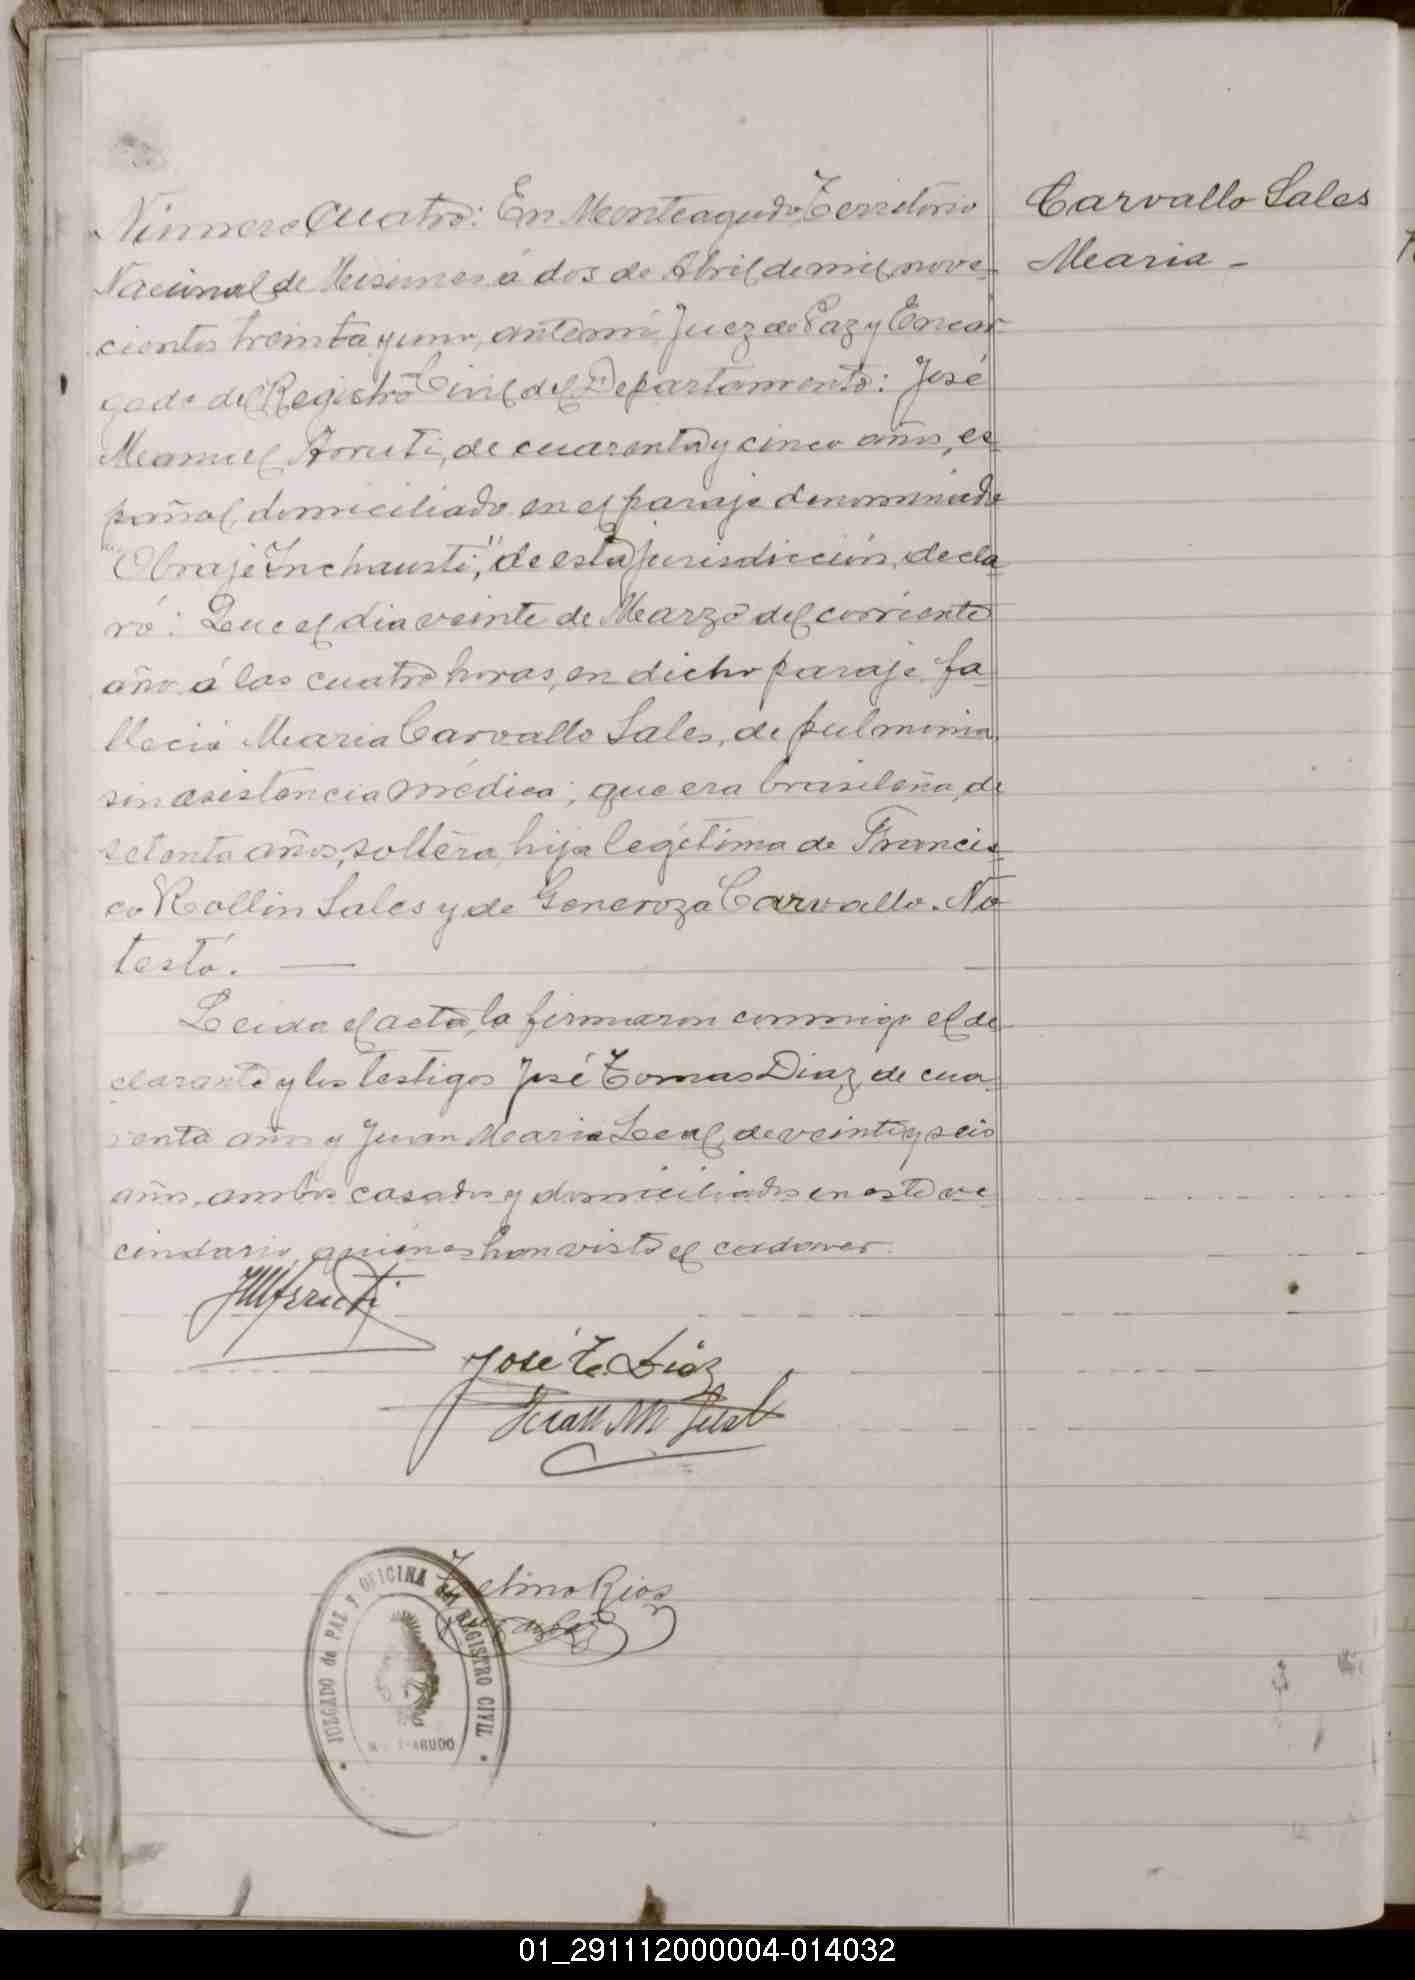 Carvallo Sales
Maria -
Número Cuatro: En Monteagudo, Territorio
Nacional de Misiones á dos de Abril de mil nove-
cientos treinta y uno, ante mi Juez de Paz y Encar-
gado del Registro Civil del Departamento: José
Manuel Aruti, de cuarenta y cinco años, es-
pañol, domiciliado en el paraje denominado
"Obraje Inchausti," de esta jurisdicción, decla-
ró: Que el dia veinte de Marzo del corriente
año á las cuatro horas, en dicho paraje fa-
lleció Maria Carvallo Sales, de pulmonia
sin asistencia médica; que era brasileña, de
setenta años, soltera, hija legítima de Francis-
co Rollin Sales y de Generoza Carvallo. No
testó. —
Leida el acta, la firmaron conmigo el de-
clarante y los testigos José Tomas Diaz, de cua-
renta años y Juan Maria Leal, de veinte y seis
años, ambos casados y domiciliados en este ve-
cindario, quiénes han visto el cadaver.
José T. Díaz
Juan M Leal
Rios
JUZGADO de PAZ Y OFICINA del REGISTRO CIVIL
01_291112000004-014032